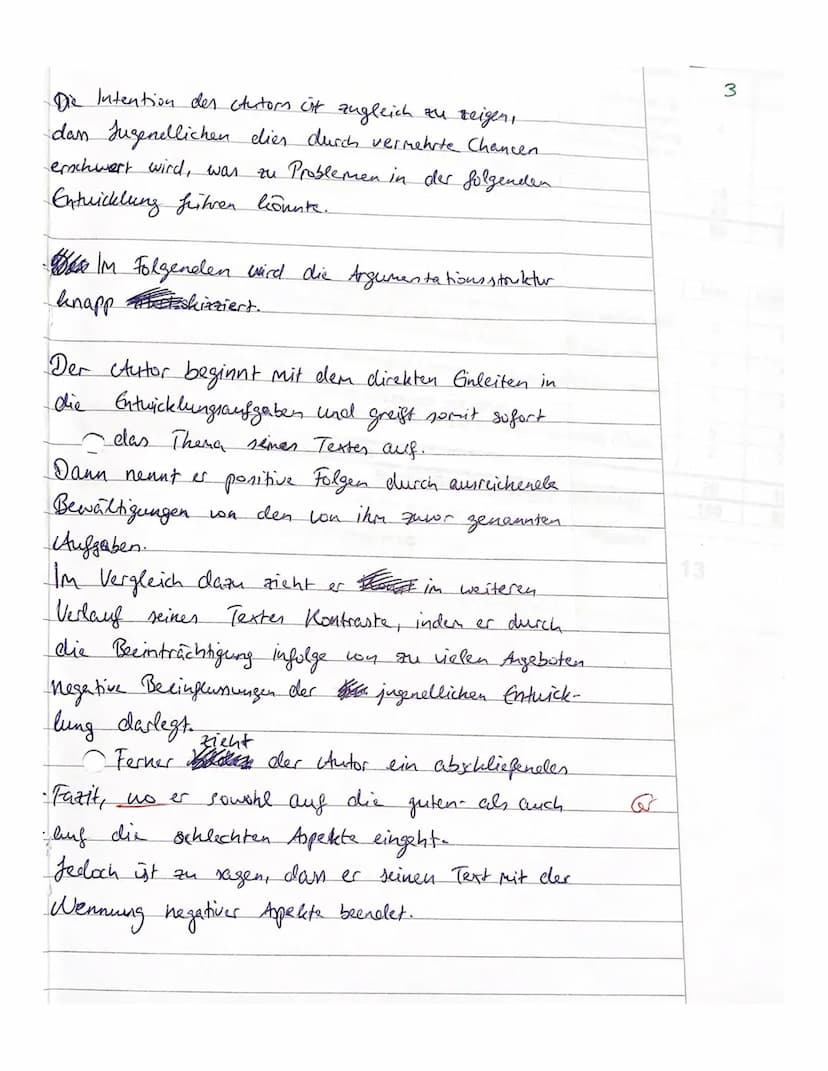 3
Die Intention des Autors ist zugleich zu zeigen,
dass Jugendlichen dies durch vermehrte Chancen
erschwert wird, was zu Problemen in der folgenden
Entwicklung führen könnte.
Im Folgenden wird die Argumentationsstruktur
knapp skizziert.
Der Autor beginnt mit dem direkten Einleiten in
die Entwicklungsaufgaben und greift somit sofort
das Thema seines Textes auf.
Dann nennt er positive Folgen durch ausreichende
Bewältigungen von den von ihm zuvor genannten
Aufgaben.
Im Vergleich dazu zieht er im weiteren
Verlauf seines Textes Kontraste, indem er durch
die Beeinträchtigung infolge von zu vielen Angeboten
negative Beeinflussungen der jugendlichen Entwick-
lung darlegt.
Ferner zieht der Autor ein abschließendes
Fazit, wo er sowohl auf die guten- als auch
auf die schlechten Aspekte eingeht.
Jedoch ist zu sagen, dass er seinen Text mit der
Nennung negativer Aspekte beendet.
13